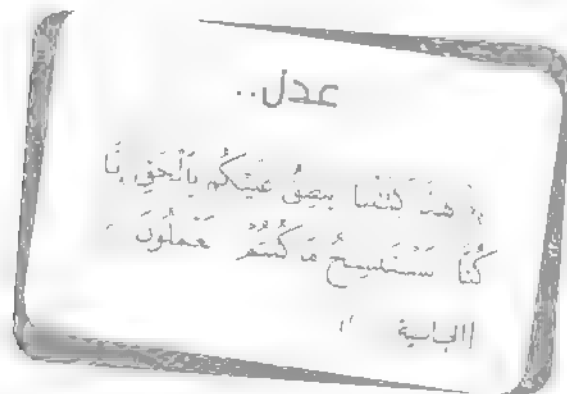 عدل..
هذا كتبنا ينطق عليكم بالحق إنا
كنا نستنسخ ما كنتم تعملون
الجاثية